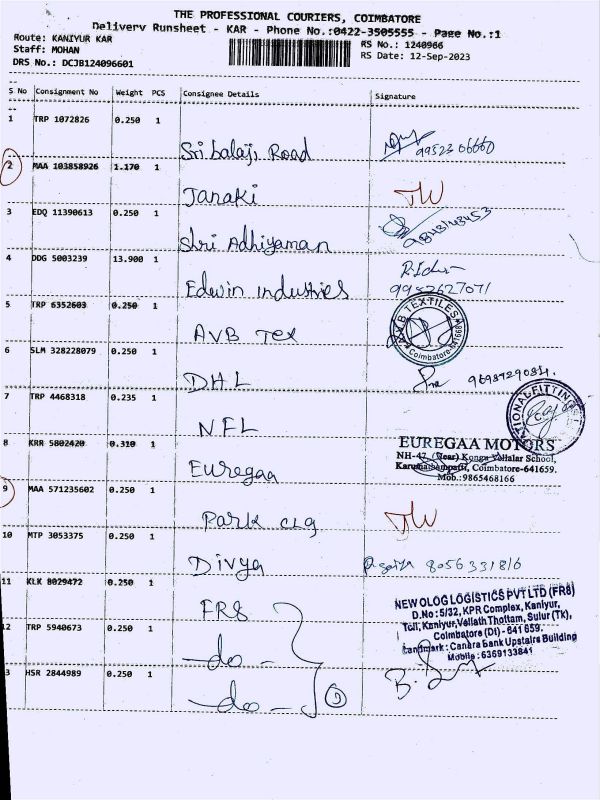 THE PROFESSIONAL COURIERS, COIMBATORE
Delivery Runsheet - KAR - Phone No.:0422-3505555 - Page No.:1
Route: KANIYUR KAR
RS No.: 1240966
Staff: MOHAN
RS Date: 12-Sep-2023
DRS No.: DCJB124096601
S No Consignment No Weight PCS Consignee Details Signature
1 TRP 1072826 0.250 1
Sri balaji Road 9952306660
2 MAA 103858926 1.170 1
Janaki TW
3 EDQ 11390613 0.250 1
Shri Adhiyaman
4 DDG 5003239 13.900 1
Edwin industries
9952627071
5 TRP 6352603 0.250 1
AVB Tex
A.V.B TEXTILES
Coimbatore-641668
6 SLM 328228079 0.250 1
DHL
7 TRP 4468318 0.235 1
NFL
NATIONAL FITTING
8 KRR 5802420 0.310 1
Euregaa
EUREGAA MOTORS
NH-47, (Near) Kongu Vellalar School,
Karumathampatti, Coimbatore-641659.
Mob.:9865468166
9 MAA 571235602 0.250 1
Park clg TW
10 MTP 3053375 0.250 1
Divya 8056331816
11 KLK 8029472 0.250 1
FR8
NEW OLOG LOGISTICS PVT LTD (FR8)
D.No : 5/32, KPR Complex, Kaniyur,
Toll, Kaniyur, Vellath Thottam, Sulur (Tk),
Coimbatore (Dt) - 641 659.
Landmark : Canara Bank Upstairs Building
Mobile : 6369133841
12 TRP 5940673 0.250 1
-do-
3 HSR 2844989 0.250 1
-do- 3